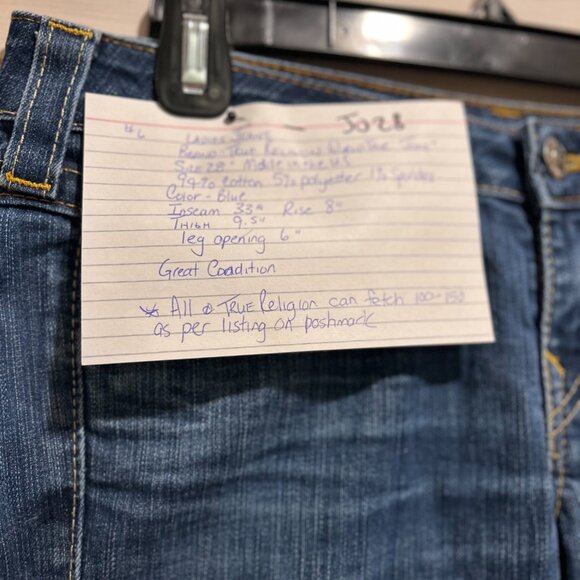 #6 Ladies Jeans JO28
Brand - True Religion Jeans"
Size 28" Made in the US
94% Cotton 5% polyester 1% Spandex
Color - Blue
Inseam 33" Rise 8"
Thigh 9.5"
leg opening 6"
Great Condition
* All True Religion can fetch 100-150
as per listing on poshmark